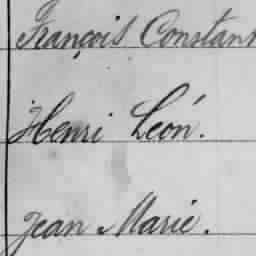 François Constant
Henri León.
Jean Marie.